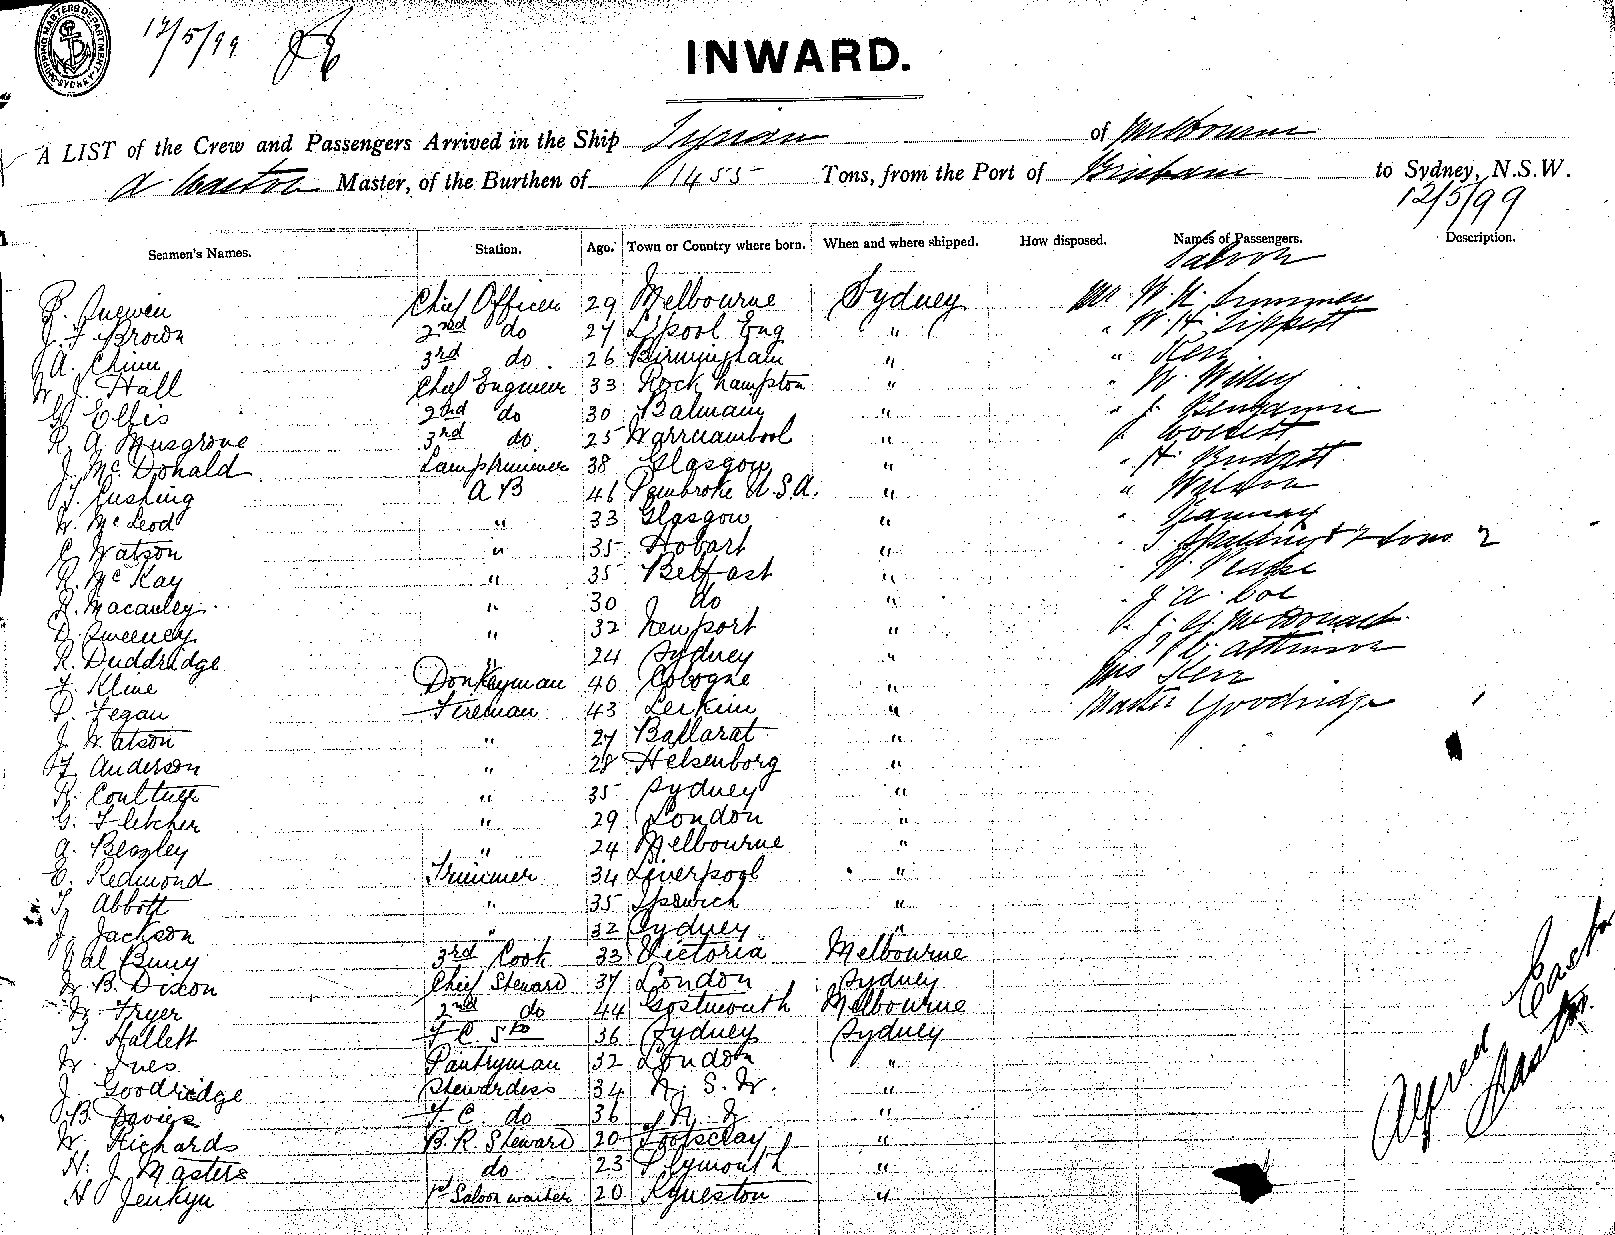 SHIPPING MASTERS DEPARTMENT SYDNEY
12/5/99
INWARD.
A LIST of the Crew and Passengers Arrived in the Ship Tyrian of Melbourne
Master, of the Burthen of 1455 Tons, from the Port of Brisbane to Sydney, N.S.W.
12/5/99
Seamen's Names. Station. Age. Town or Country where born. When and where shipped. How disposed. Names of Passengers. Description.
Saloon
Chief Officer 29 Melbourne Sydney Mr W. H.
J. F Brown 2nd do 27 L'pool Eng " " W. H. Tippett
A. Chinn 3rd do 26 Birmingham " " Kerr
W. J. Hall Chief Engineer 33 Rockhampton " " W. Willey
G. Ellis 2nd do 30 Balmain " " J. Benjamin
R. A. Musgrove 3rd do 25 Warrnambool "
J. McDonald Lamptrimmer 38 Glasgow " " H.
T. Cushing A B 46 Pembroke U.S.A. " "
W. McLeod " 33 Glasgow " "
C. Watson " 35 Hobart " " & 2 sons 2
R. McKay " 35 Belfast " " W.
R. Macauley " 30 do " " J. A. Coe
D. Sweeney " 32 Newport " " J. G. McDonald
R. Duddridge " 24 Sydney " Atkinson
F. Kline Donkeyman 40 Cologne " Mrs Kerr
P. Fegan Fireman 43 " Master Goodridge
J. Watson " 27 Ballarat "
Anderson " 28 Helsenborg "
R. Coulture " 35 Sydney "
G. Fletcher " 29 London "
A. Beazley " 24 Melbourne "
E. Redmond Trimmer 34 Liverpool "
T. Abbott " 35 Ipswich "
J. Jackson " 32 Sydney "
Buny 3rd Cook 33 Victoria Melbourne
W. B. Dixon Chief Steward 37 London Sydney
W. Fryer 2nd do 44 Melbourne
T. Hallett F C 36 Sydney Sydney
W. Ives Pantryman 32 London "
J. Goodridge Stewardess 34 N. S. W. "
B. Davies F C do 36 "
W. Richards B.R. Steward 20 Footscray "
H. J. Masters do 23 Plymouth "
H Jenkyn 1st Saloon waiter 20 Kyneton "
Alfred
Master